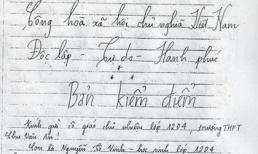 Cộng hoà xã hội chủ nghĩa Việt Nam
Độc lập - Tự do - Hạnh phúc
Bản kiểm điểm
Kính gửi cô giáo chủ nhiệm lớp 12D4, trường THPT
Chu Văn An!
Con là Nguyễn Tú Ninh - học sinh lớp 12D4